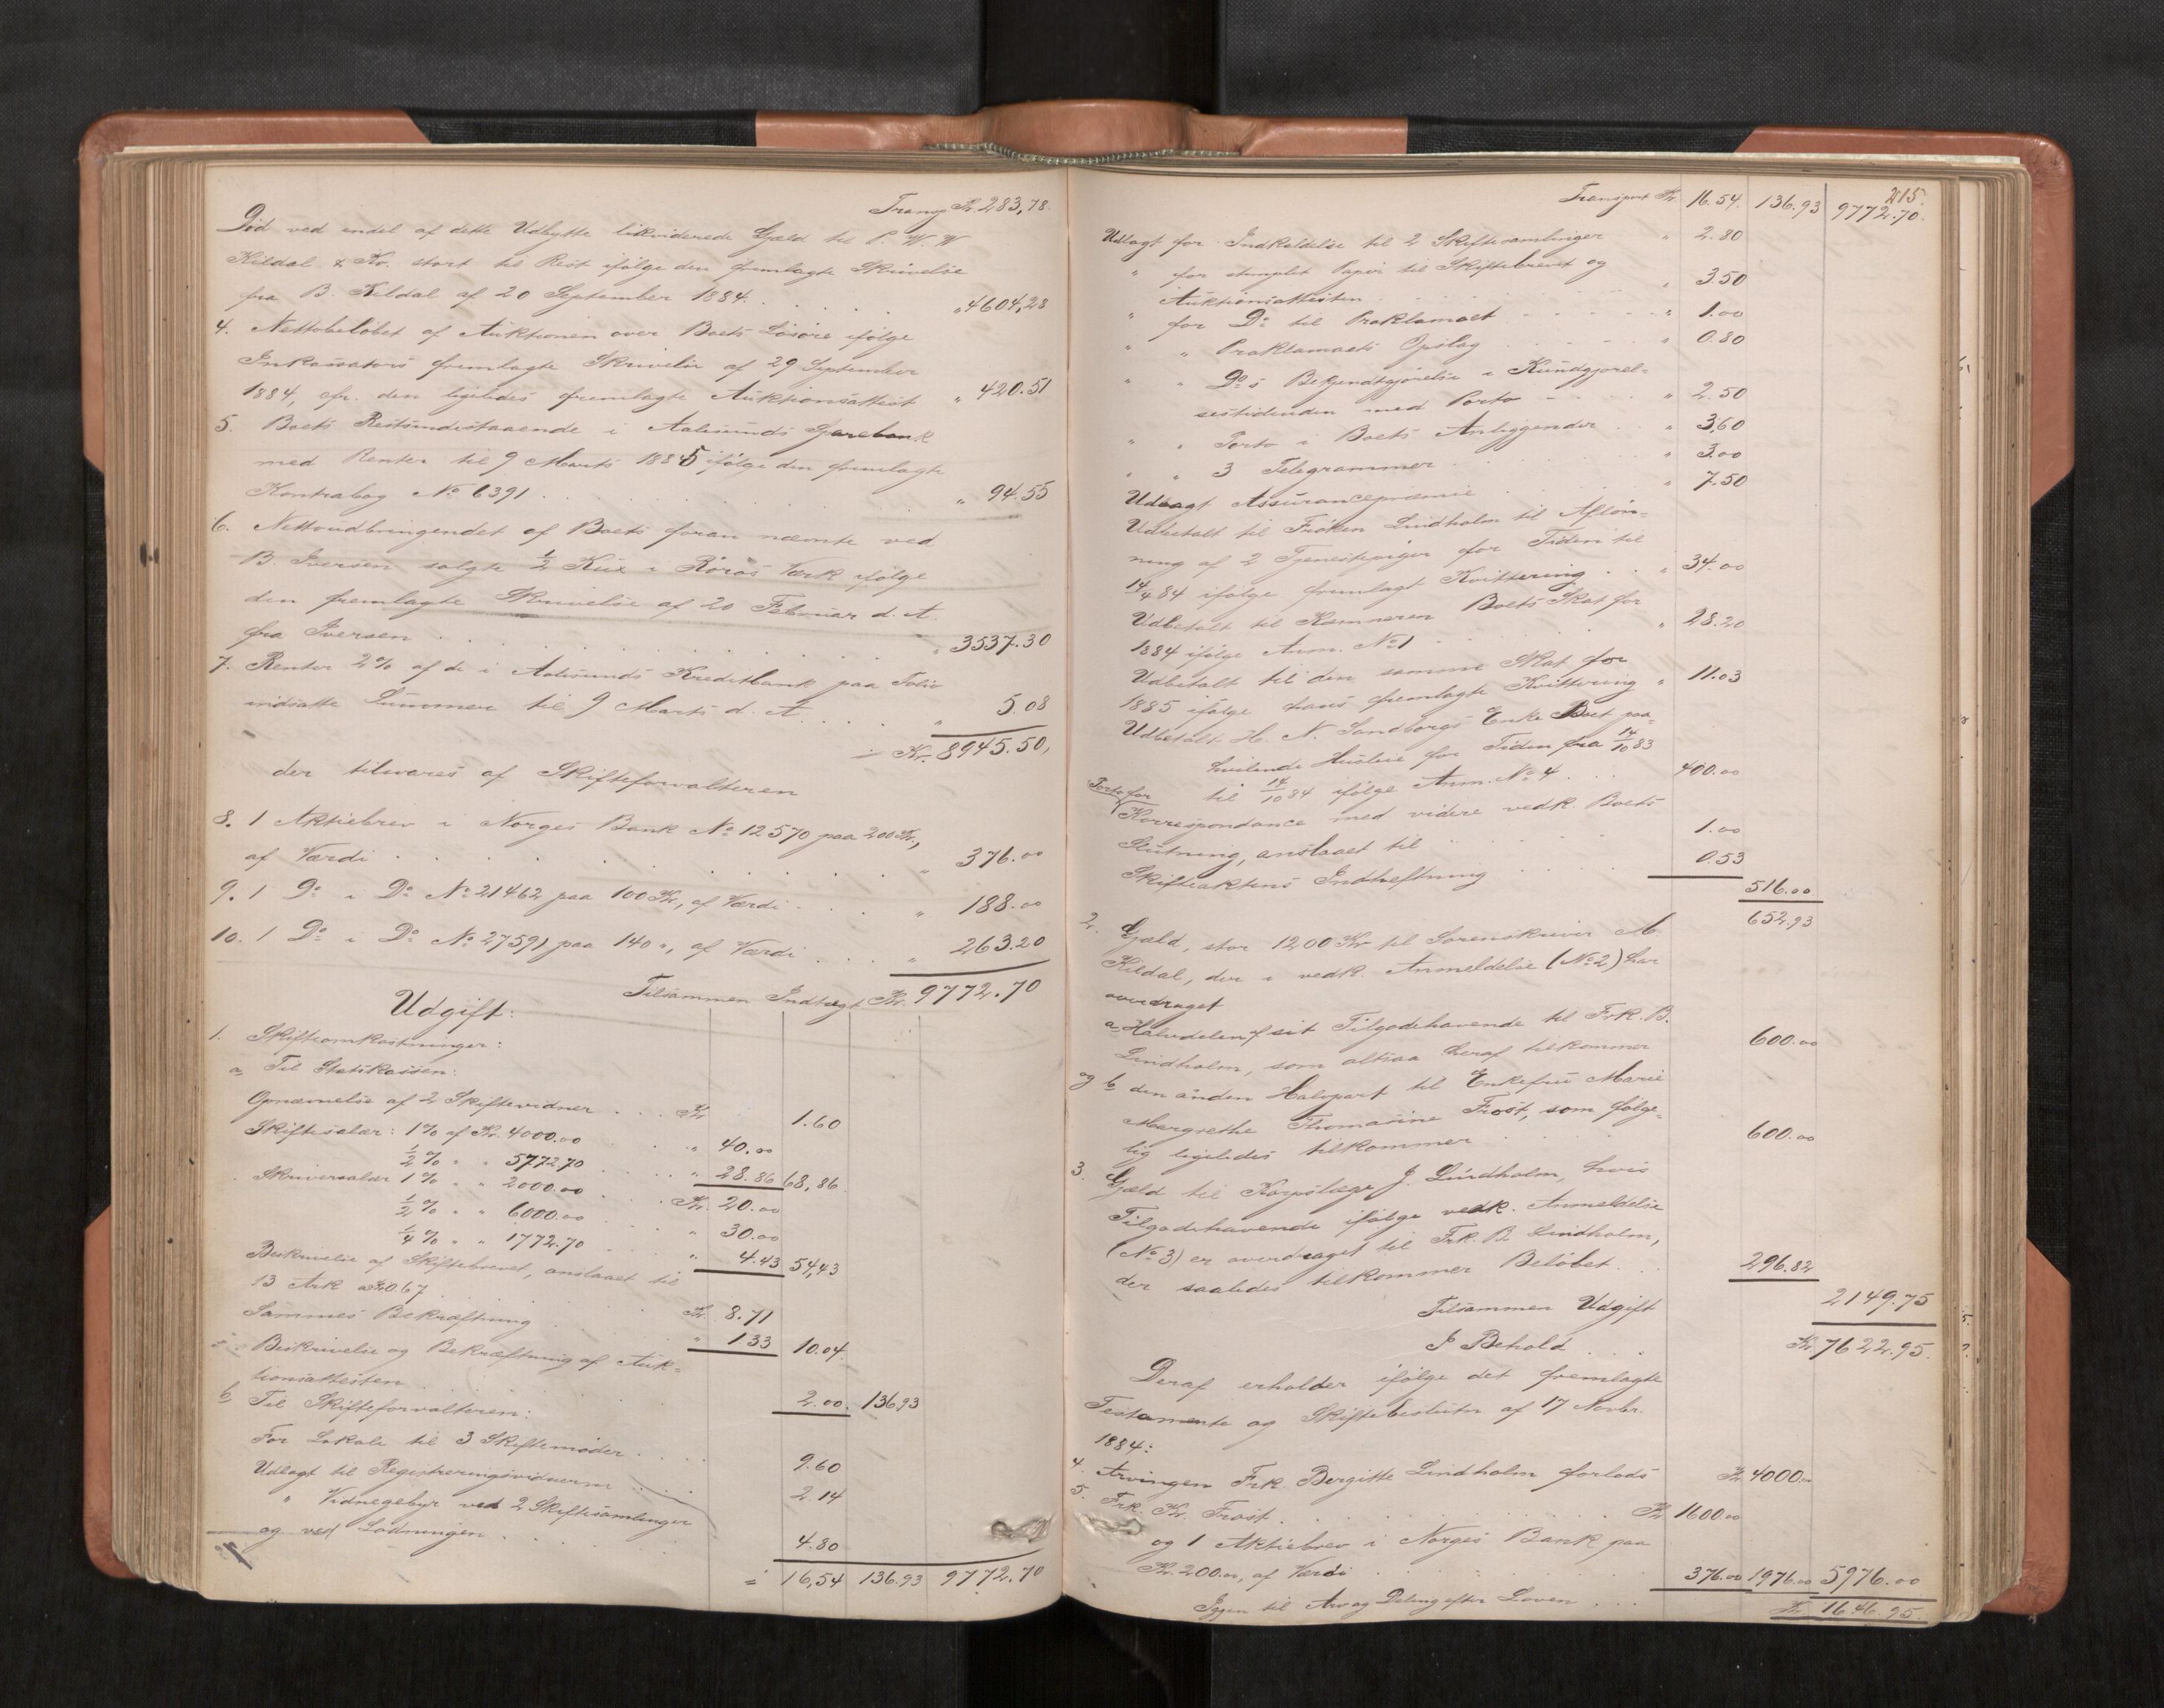 Transp Kr. 283,78.
Död ved endel af dette Udbytte likviderede Gjæld til P. W. W
Kildal & Ko. stort til Rest ifölge den fremlagte Skrivelse
fra B. Kildal af 20 September 1884. . . . . " 4604,28
4. Nettobelöbet af Auktionen over Boets Lösöre ifölge
Inkassators fremlagte Skrivelse af 29 September
1884, cfr. den ligeledes fremlagte Auktionsattest " 420.51
5. Boets Restindestaaende i Aalesunds Sparebank
med Renter til 9 Marts 1885 ifölge den fremlagte
Kontrabog No 6391 . . . . . " 94.55
6. Nettoudbringendet af Boets foran nævnte ved
B. Iversen solgte 1/2 Kux i Röros Værk ifölge
den fremlagte Skrivelse af 20 Februar d. A.
fra Iversen . . . . . " 3537.30
7. Renter 2% af de i Aalesunds Kreditbank paa Folio
indsatte Summer til 9 Marts d. A. . . . " 5.08
Kr. 8945.50,
der tilvares af Skifteforvalteren
8. 1 Aktiebrev i Norges Bank No 12570 paa 200 Kr.,
af Værdi . . . . . " 376.00
9. 1 Do i Do No 21462 paa 100 Kr., af Værdi . . . " 188.00
10. 1 Do i Do No 27591 paa 140 ", af Værdi . . . " 263.20
Tilsammen Indtægt Kr. 9772.70
Udgift:
1. Skifteomkostninger:
a, Til Statskassen:
Opnævnelse af 2 Skiftevidner . . . Kr. 1.60
Skiftesalær: 1% af Kr. 4000.00 . . " 40.00
1/2 % " " 5772.70 . . . " 28.86 68,86
Skriversalær 1% " " 2000.00 . . . Kr. 20.00
1/2 % " " 6000.00 . . . " 30.00
1/4 % " " 1772.70 . . . " 4.43 54,43
Beskrivelse af Skiftebrevet, anslaaet til
13 Ark a Kr. 0.67 . . . . Kr. 8.71
Sammes Bekræftning . . . " 1.33 10.04.
Beskrivelse og Bekræftning af Auk=
tionsattesten . . . . 2.00. 136.93
b, Til Skifteforvalteren:
For Lokale til 3 Skiftemöder . . . . 9.60
Udlagt til Registreringsvidnerne . . . 2.14
" Vidnegebyr ved 2 Skiftesamlinger
og ved Lodningen . . . . 4.80
16,54 136.93 9772.70
215.
Transport Kr. 16.54. 136.93 9772.70.
Udlagt for Indkaldelse til 2 Skiftesamlinger " 2.80
" for stemplet Papir til Skiftebrevet og
Auktionsattesten . . . . . " 3.50
" for Do til Proklamaet . . . . " 1.00
" " Proklamaets Opslag . . . . " 0.80
" " Do s Bekjendtgjörelse i Kundgjörel=
sestidenden med Porto . . . . " 2.50
" " Porto i Boets Anliggender . . " 3.60
" " 3 Telegrammer . . . . " 3.00
Udlagt Assurancepræmie . . . . " 7.50
Udbetalt til Fröken Lindholm til Aflön=
ning af 2 Tjenestepiger for Tiden til
14/4 84 ifölge fremlagt Kvittering . . " 34.00
Udbetalt til Kæmneren Boets Skat for
1884 ifölge Anm. No 1 . . . . " 28.20
Udbetalt til den samme Skat for
1885 ifölge hans fremlagte Kvittering " 11.03
Udbetalt H. N. Sandborgs Enke Boet paa=
hvilende Husleie for Tiden fra 14/10 83
til 14/10 84 ifölge Anm. No 4 . . . 400.00
Porto for
Korrespondance med videre vedk. Boets
Slutning, anslaaet til . . . . 1.00
Skifteaktens Indheftning . . . . 0.53
516.00
652.93
2. Gjæld, stor 1200 Kr. til Sorenskriver M.
Kildal, der i vedk. Anmeldelse (No 2) har
overdraget
a, Halvdelen af sit Tilgodehavende til Frk. B.
Lindholm, som altsaa heraf tilkommer 600.00
og b, den anden Halvpart til Enkefru Marie
Margrethe Thomasine Frost, som fölge=
lig ligeledes tilkommer . . . . 600.00
3. Gjæld til Korpslæge J. Lindholm, hvis
Tilgodehavende ifölge vedk. Anmeldelse
(No 3) er overdraget til Frk. B. Lindholm,
der saaledes tilkommer Belöbet . . 296.82
Tilsammen Udgift 2149.75
I Behold . . . Kr. 7622.95.
Deraf erholder ifölge det fremlagte
Testamente og Skiftebeslutn. af 17 Novbr.
1884:
4. Arvingen Frk. Bergitte Lindholm forlods Kr. 4000.00
5. Frk. Kr. Frost . . . . . Kr. 1600.00
og 1 Aktiebrev i Norges Bank paa
Kr. 200.00, af Værdi . . . . 376.00 1976.00 5976.00
Igjen til Arv og Deling efter Loven . . . Kr. 1646.95.